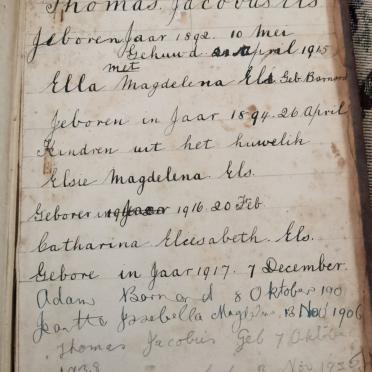 Thomas. Jacobus Els
Jeboren Jaar 1892. 10 Mei
Gehuwd. 21 April 1915
met
Ella Magdelena Els Geb. Barnard
Jeboren in Jaar 1894. 26 April
Kindren uit het huwelik
Elsie Magdelena. Els.
Geboren in Jaar 1916. 20 Feb
Catharina Eleesabeth. Els.
Gebore in Jaar 1917. 7 December.
Adam Barnard 8 Oktober 190
Jssebella 13 Nov 1906
Thomas Jacobus Geb 7 Oktober
Nov